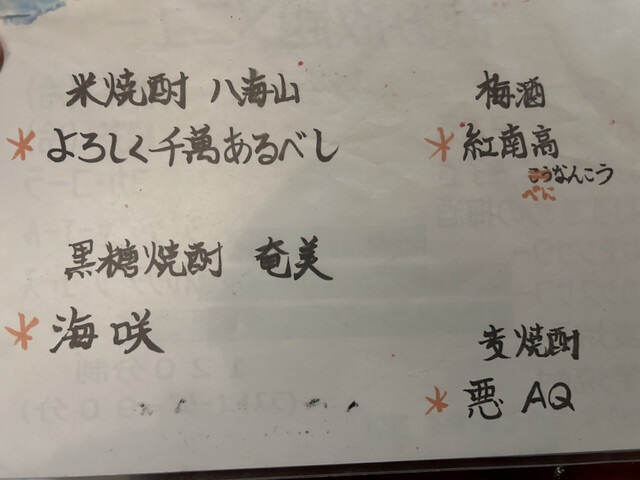 米焼酎 八海山
＊よろしく千萬あるべし
黒糖焼酎 奄美
＊海咲
梅酒
＊紅南高
べになんこう
麦焼酎
＊悪 AQ
120分制
90分)